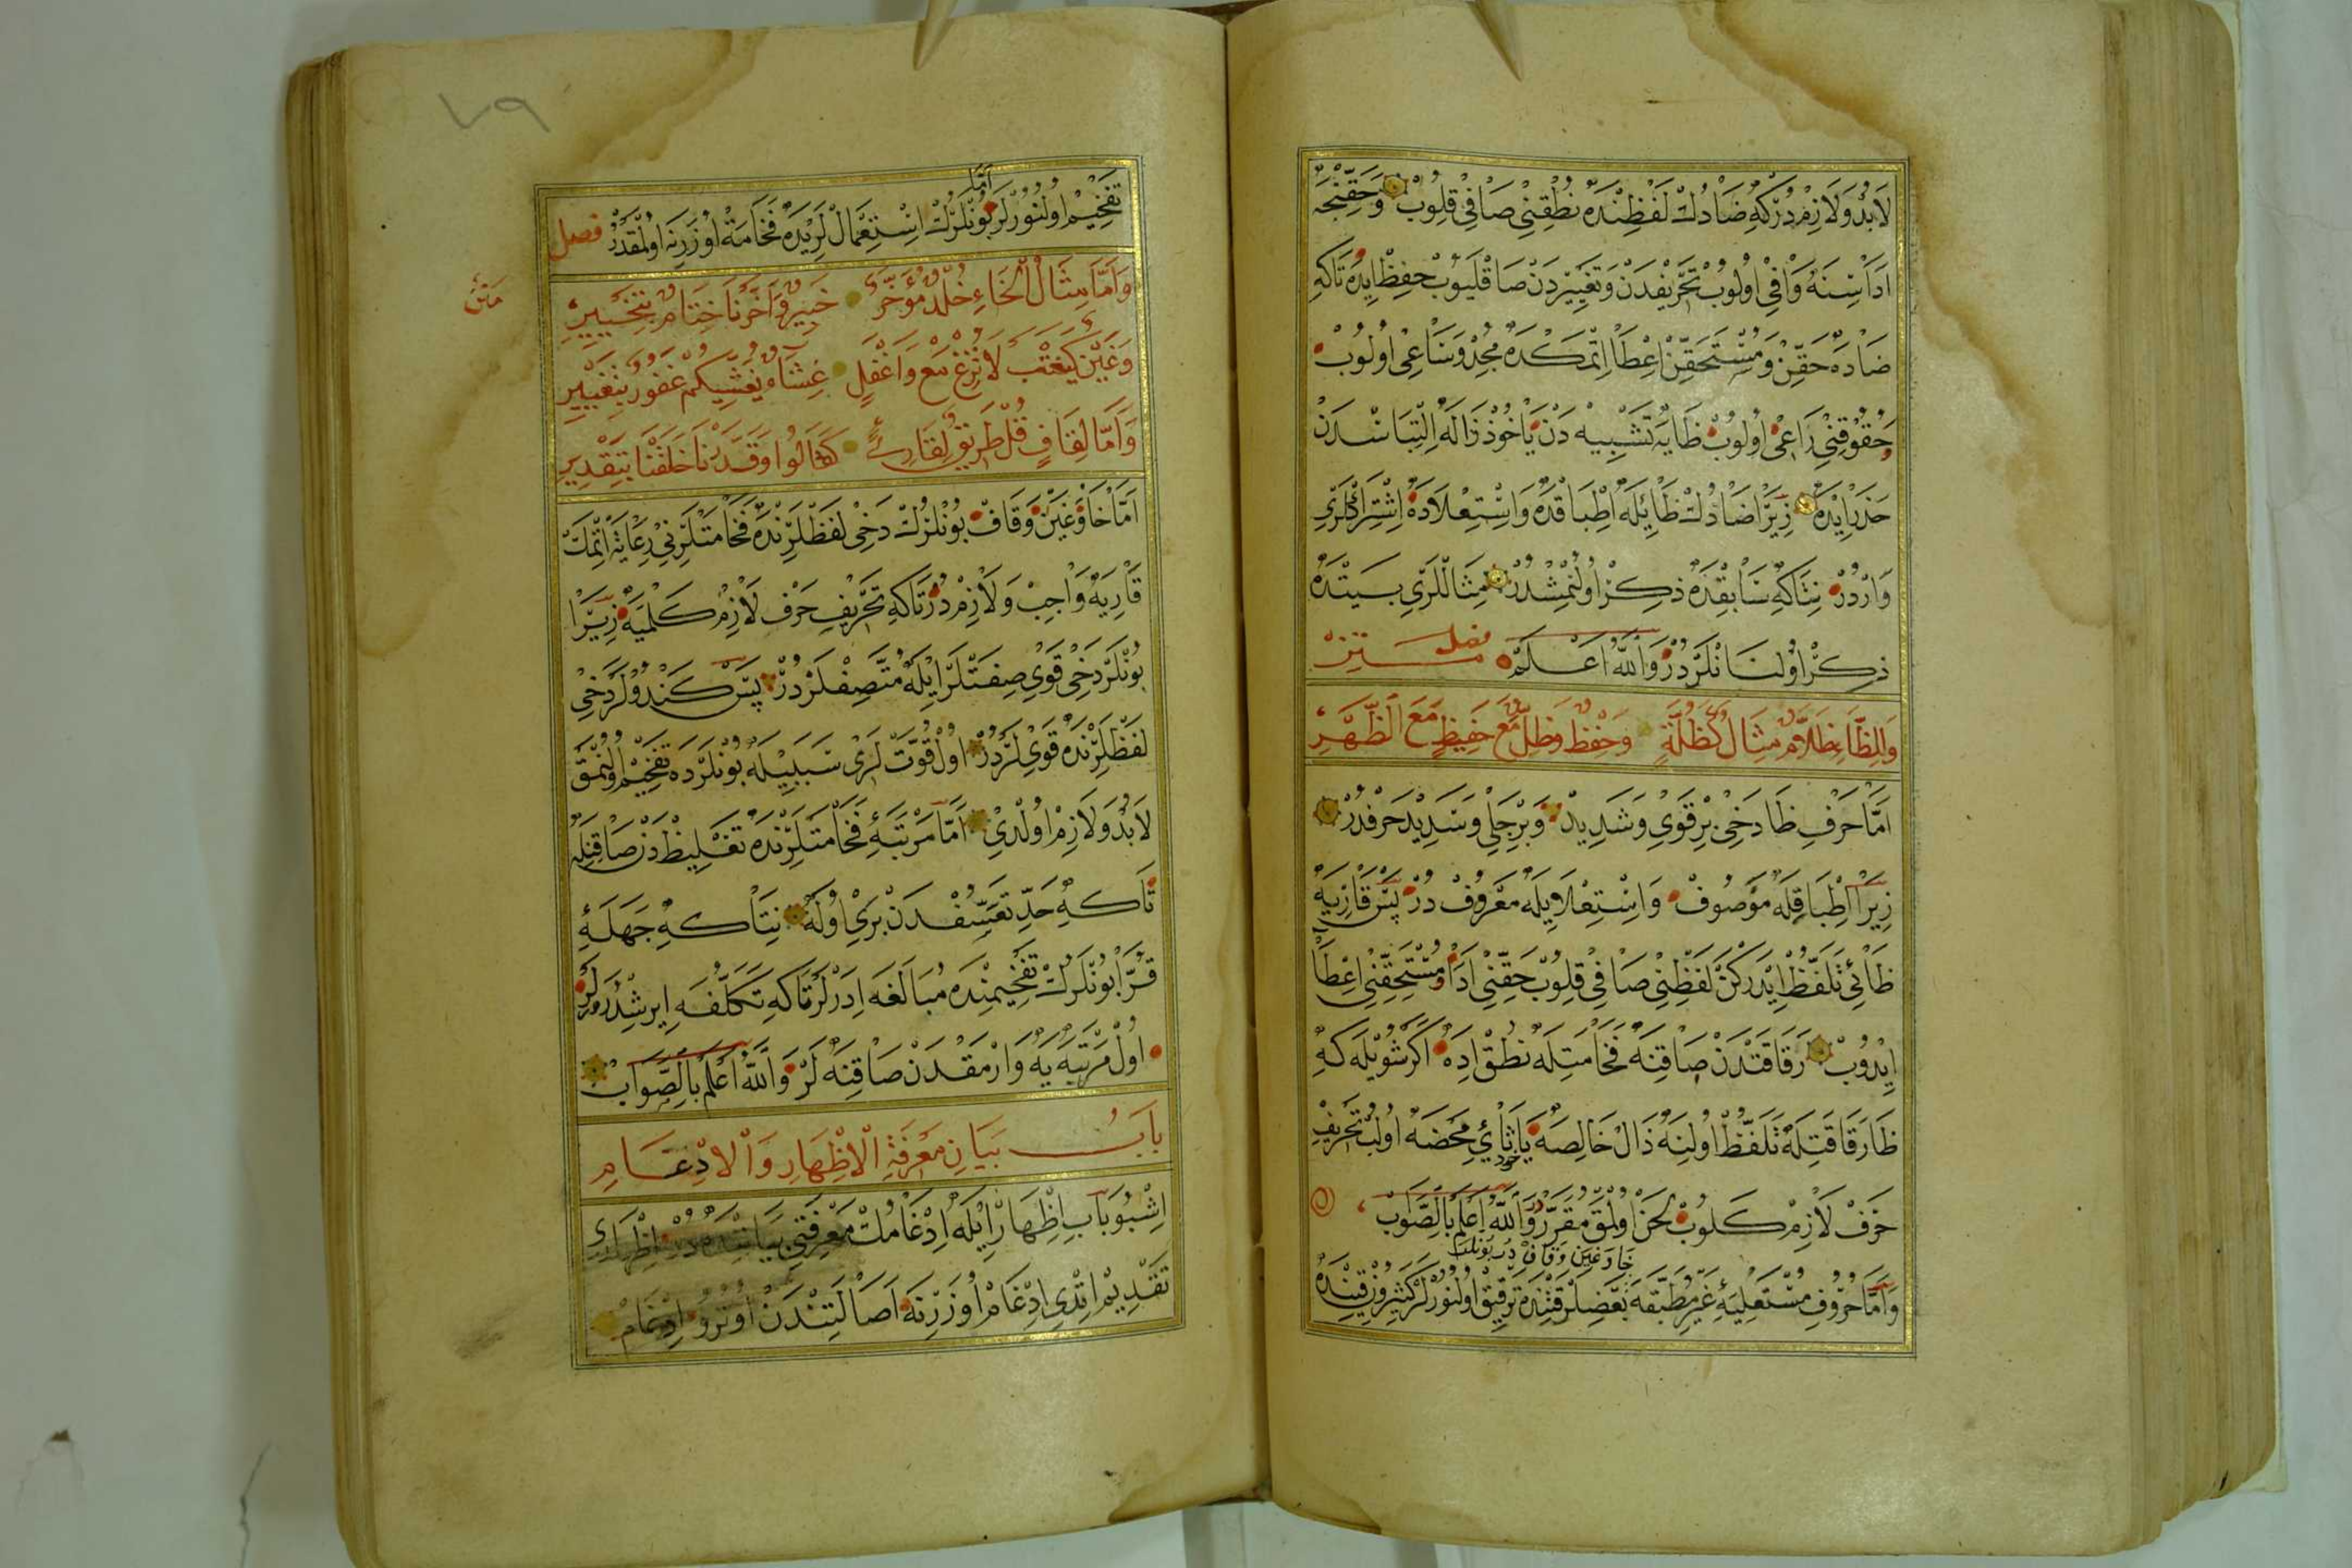 لَابُدُّ وَلَازِمْدُرْكِهْ ضَادُكْ لَفْظِنْدَهْ نُطْقِنِي صَافِي قِلُوبْ وَحَقِّنْجَهْ
اَدَاسِنَهْ وَافِي اُولُوبْ تَحْرِيفْدَنْ وَتَغْيِيرْدَنْ صَاقْلَيُوبْ حِفِظْ اِيدَهْ تَاكِهْ
ضَادَهْ حَقِّنْ وَمُسْتَحَقِّنْ اِعْطَا اِتْمَكْدَهْ مُجِدْ وَسَاعِي اُولُوبْ
حُقُوقِنِي رَاعِي اُولُوبْ ظَايَهْ تَشْبِيهْدَنْ يَاخُوذْ ذَالَهْ اِلْتِبَاسْدَنْ
حَذَرْ اِيْدَهْ زِيرَا ضَادُكْ ظَا اِيلَهْ اِطْبَاقْدَهْ وَاسْتِعْلَادَهْ اِشْتِرَاكْلَرِي
وَارْدُرْ نِتَاكِهْ سَابِقْدَهْ ذِكِرْ اُولُنْمِشْدُرْ مِثَالْلَرِي بَيِتْدَهْ
ذِكِرْ اُولُنَانْلَرْدُرْ وَاللّٰهُ اَعْلَمُ فصل متن
وَلِلظَّاءِ ظَلَّامٍ مِثَالٌ كَظُلَّةٍ وَحِفْظٍ وَظِلٍّ مَعَ حَفِيظٍ مَعَ الظَّهْرِ
اَمَّا حَرْفِ ظَا دَخِي بِرْ قَوِي وَشَدِيدْ وَبِرْ جَلِي وَسَدِيدْ حَرْفْدُرْ
زِيرَا اِطْبَاقِلَهْ مَوْصُوفْ وَاسْتِعْلَا وِيلَهْ مَعْرُوفْ دُرْ پَسْ قَارِيَهْ
ظَائِي تَلَفُّظْ اِيْدَرْكَنْ لَفْظِنِي صَافِي قِلُوبْ حَقِّنِي اَدَا وَمُسْتَحَقِّنِي اِعْطَا
اِيدُوبْ رَقَاقَتْدَنْ صَاقِنَهْ فَخَامَتِلَهْ نُطْقْ اِدَهْ اَكَرْ شُويْلَهْ كِهْ
ظَا رَقَاقَتِلَهْ تَلَفُّظْ اُولِنَهْ ذَالْ خَالِصَهْ يَاخود ثَائِ مَحْضَهْ اُولُبْ تَحْرِيفِ
حَرْفْ لَازِمْ كَلُوبْ لَحَنْ اُولْمَقْ مُقَرَّرْدُرْ وَاللّٰهُ اَعْلَمُ بِالصَّوَابْ
خَا وَغَيْن وَقَافْ دُرْ بُونْلَرْ
وَاَمَّا حُرُوفِ مُسْتَعْلِيَهِٔ غَيْرِ مُطْبَقَهْ بَعْضِلَرْ قَتِنْدَهْ تَرْقِيقْ اُولُنُورْلَرْ
تَفْخِيمْ اُولُنُورْلَرْ اَمَّا بُونْلَرُكْ اِسْتِعْمَالْلَرِيدَهْ فَخَامَتْ اُوزَرِنَهْ اُولْمَقْدُرْ فصل
وَاَمَّا مِثَالُ الْخَاءِ خُلْدٌ مُؤَخَّرٌ خَبِيرٌ وَاَخَّرْنَا خِتَامٌ بِتَخْيِيرِ
متن
وَغَيْنٌ كَيَغْتَبْ لَا تُزِغْ مَعَ وَاَغْفَلٍ غِشَاهُ يُغَشِّيكُمْ غَفُورٌ بِتَغْيِيرِ
وَاَمَّا لِقَافٍ قُلْ طَرِيقٌ لِقَارِئٍ كَقَالُوا وَقَدَّرْنَا خَلَقْنَا بِتَقْدِيرِ
اَمَّا خَا وَغَيْنْ وَقَافْ بُونْلَرُكْ دَخِي لَفْظْلَرِنْدَهْ فَخَامَتْلَرِنِي رِعَايَتْ اِتْمَكْ
قَارِيَهْ وَاجِبْ وَلَازِمْدُرْ تَاكِهْ تَحْرِيفِ حَرْفْ لَازِمْ كَلْمَيَهْ زِيرَا
بُونْلَرْ دَخِي قَوِي صِفَتْلَرْ اِيلَهْ مُتَّصِفْلَرْدُرْ پَسْ كَنْدُولَرْ دَخِي
لَفْظْلَرِنْدَهْ قَوِيلَرْدُرْ اُولْ قُوَّتْلَرِي سَبَبِيلَهْ بُونْلَرْدَهْ تَفْخِيمْ اُولُنْمَقْ
لَابُدْ وَلَازِمْ اُولْدِي اَمَّا مَرْتَبَهِٔ فَخَامَتْلَرِنْدَهْ تَغْلِيظْدَنْ صَاقِنِلَهْ
تَاكِهْ حَدِّ تَعَسُّفْدَنْ بَرِي اُولَهْ نِتَاكِهْ جَهَلَهِٔ
قُرَّا بُونْلَرُكْ تَفْخِيمِنْدَهْ مُبَالَغَه اِدَرْلَرْ تَاكِهْ تَكَلُّفَهْ اِيرِشْدُرُرْلَرْ
اُولْ مَرْتَبَهْ يَهْ وَارْمَقْدَنْ صَاقِنَهْلَرْ وَاللّٰهُ اَعْلَمُ بِالصَّوَابْ
بَابُ بَيَانِ مَعْرِفَةِ الْاِظْهَارِ وَالْاِدْغَامِ
اِشْبُو بَابْ اِظْهَارْ اِيلَهْ اِدْغَامُكْ مَعْرِفَتِي بَيَانِنْدَهْدُرْ اِظْهَارِي
تَقْدِيمْ اِتْدِي اِدْغَامْ اُوزَرِنَهْ اَصَالَتِنْدَنْ اُوتُرُو اِدْغَامْ